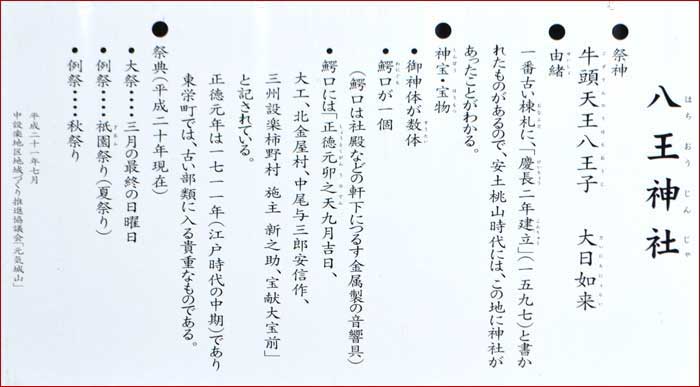 八王神社
はちおうじんじゃ
●祭神
牛頭天王八王子　大日如来
●由緒
一番古い棟札に、「慶長二年建立」(一五九七)と書か
れたものがあるので、安土桃山時代には、この地に神社が
あったことがわかる。
●神宝・宝物
・御神体が数体
・鰐口が一個
(鰐口は社殿などの軒下につるす金属製の音響具)
・鰐口には「正徳元卯之天九月吉日、
大工、北金屋村、中尾与三郎安信作、
三州設楽柿野村　施主　新之助、宝献大宝前」
と記されている。
正徳元年は一七一一年(江戸時代の中期)であり
東栄町では、古い部類に入る貴重なものである。
●祭典(平成二十年現在)
・大祭・・・・三月の最終の日曜日
・例祭・・・・祇園祭り(夏祭り)
・例祭・・・・秋祭り
平成二十一年七月
中設楽地区地域づくり推進協議会「元気城山」